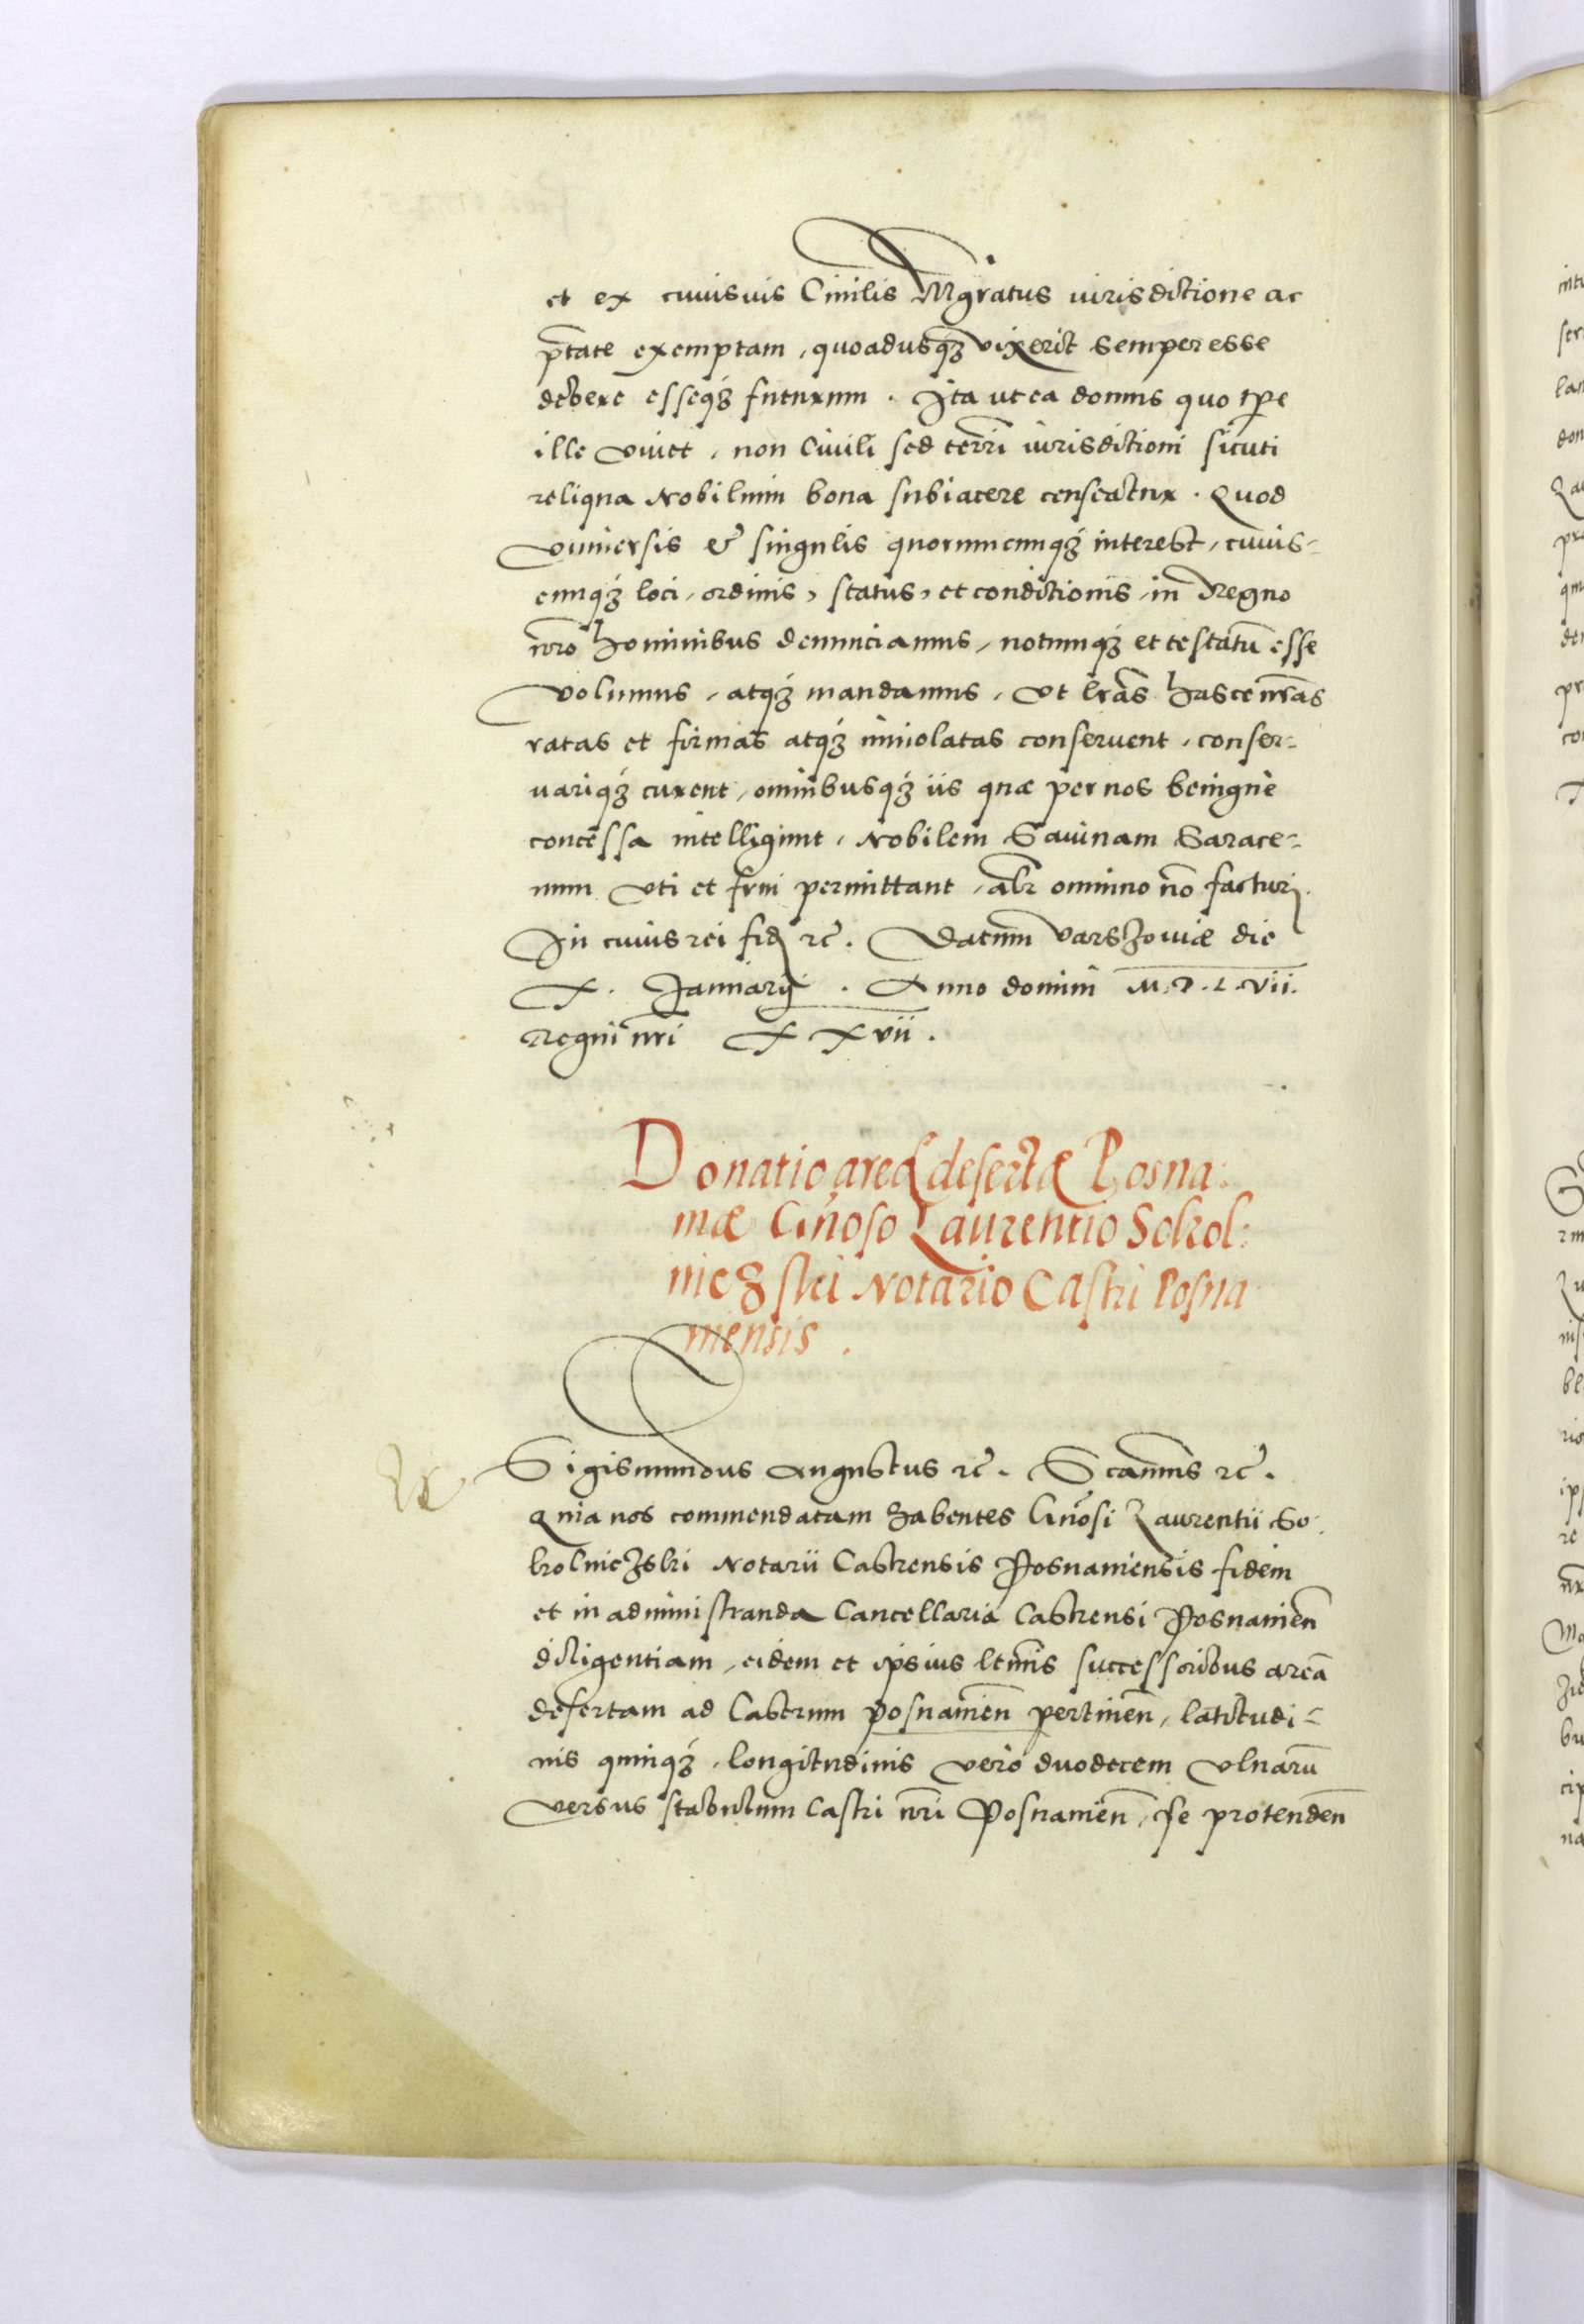 et ex cuiusuis Ciuilis Mgratus iurisdictione ac
ptate exemptam, quoadusq3 vixerit semper esse
debere esseq3 futurum. Ita ut ea domus quo tpe
ille viuet, non Ciuili sed terri iurisdictioni sicuti
reliqua Nobilium bona subiacere censeatur. Quod
vniuersis & singulis quorumcunq3 interest, cuius=
cunq3 loci, ordinis, status, et conditionis, in Regno
nro hominibus denunciamus, notumq3 et testatū esse
volumus, atq3 mandamus, vt lras hasce nras
ratas et firmas atq3 inuiolatas conseruent, conser=
uariq3 curent, omnibusq3 iis quæ per nos benigne
concessa intelligunt, Nobilem Sauinam Sarace=
num vti et frui permittant, alr omnino nō facturj.
In cuius rei fid rc. Datum Varszouiæ die
X. Januarij. Anno domini M.D.L.vii.
Regni nri XXvii.
Donatio areæ desertæ Posna:
niæ Gnoso Laurentio Sokol:
nic3ski Notario Castri Posna
niensis.
Sigismundus Augustus rc. Scamus rc.
Quia nos commendatam habentes Gnosi Laurentii So
kolniczski Notarii Castrensis Posnaniensis fidem
et in administranda Cancellaria Castrensi Posnanien
diligentiam, eidem et ipsius ltmis successoribus areā
desertam ad Castrum posnanien pertinen, latitudi=
nis quinq3, longitudinis vero duodecem vlnarū
versus stabulum Castri nri Posnanien, se protenden